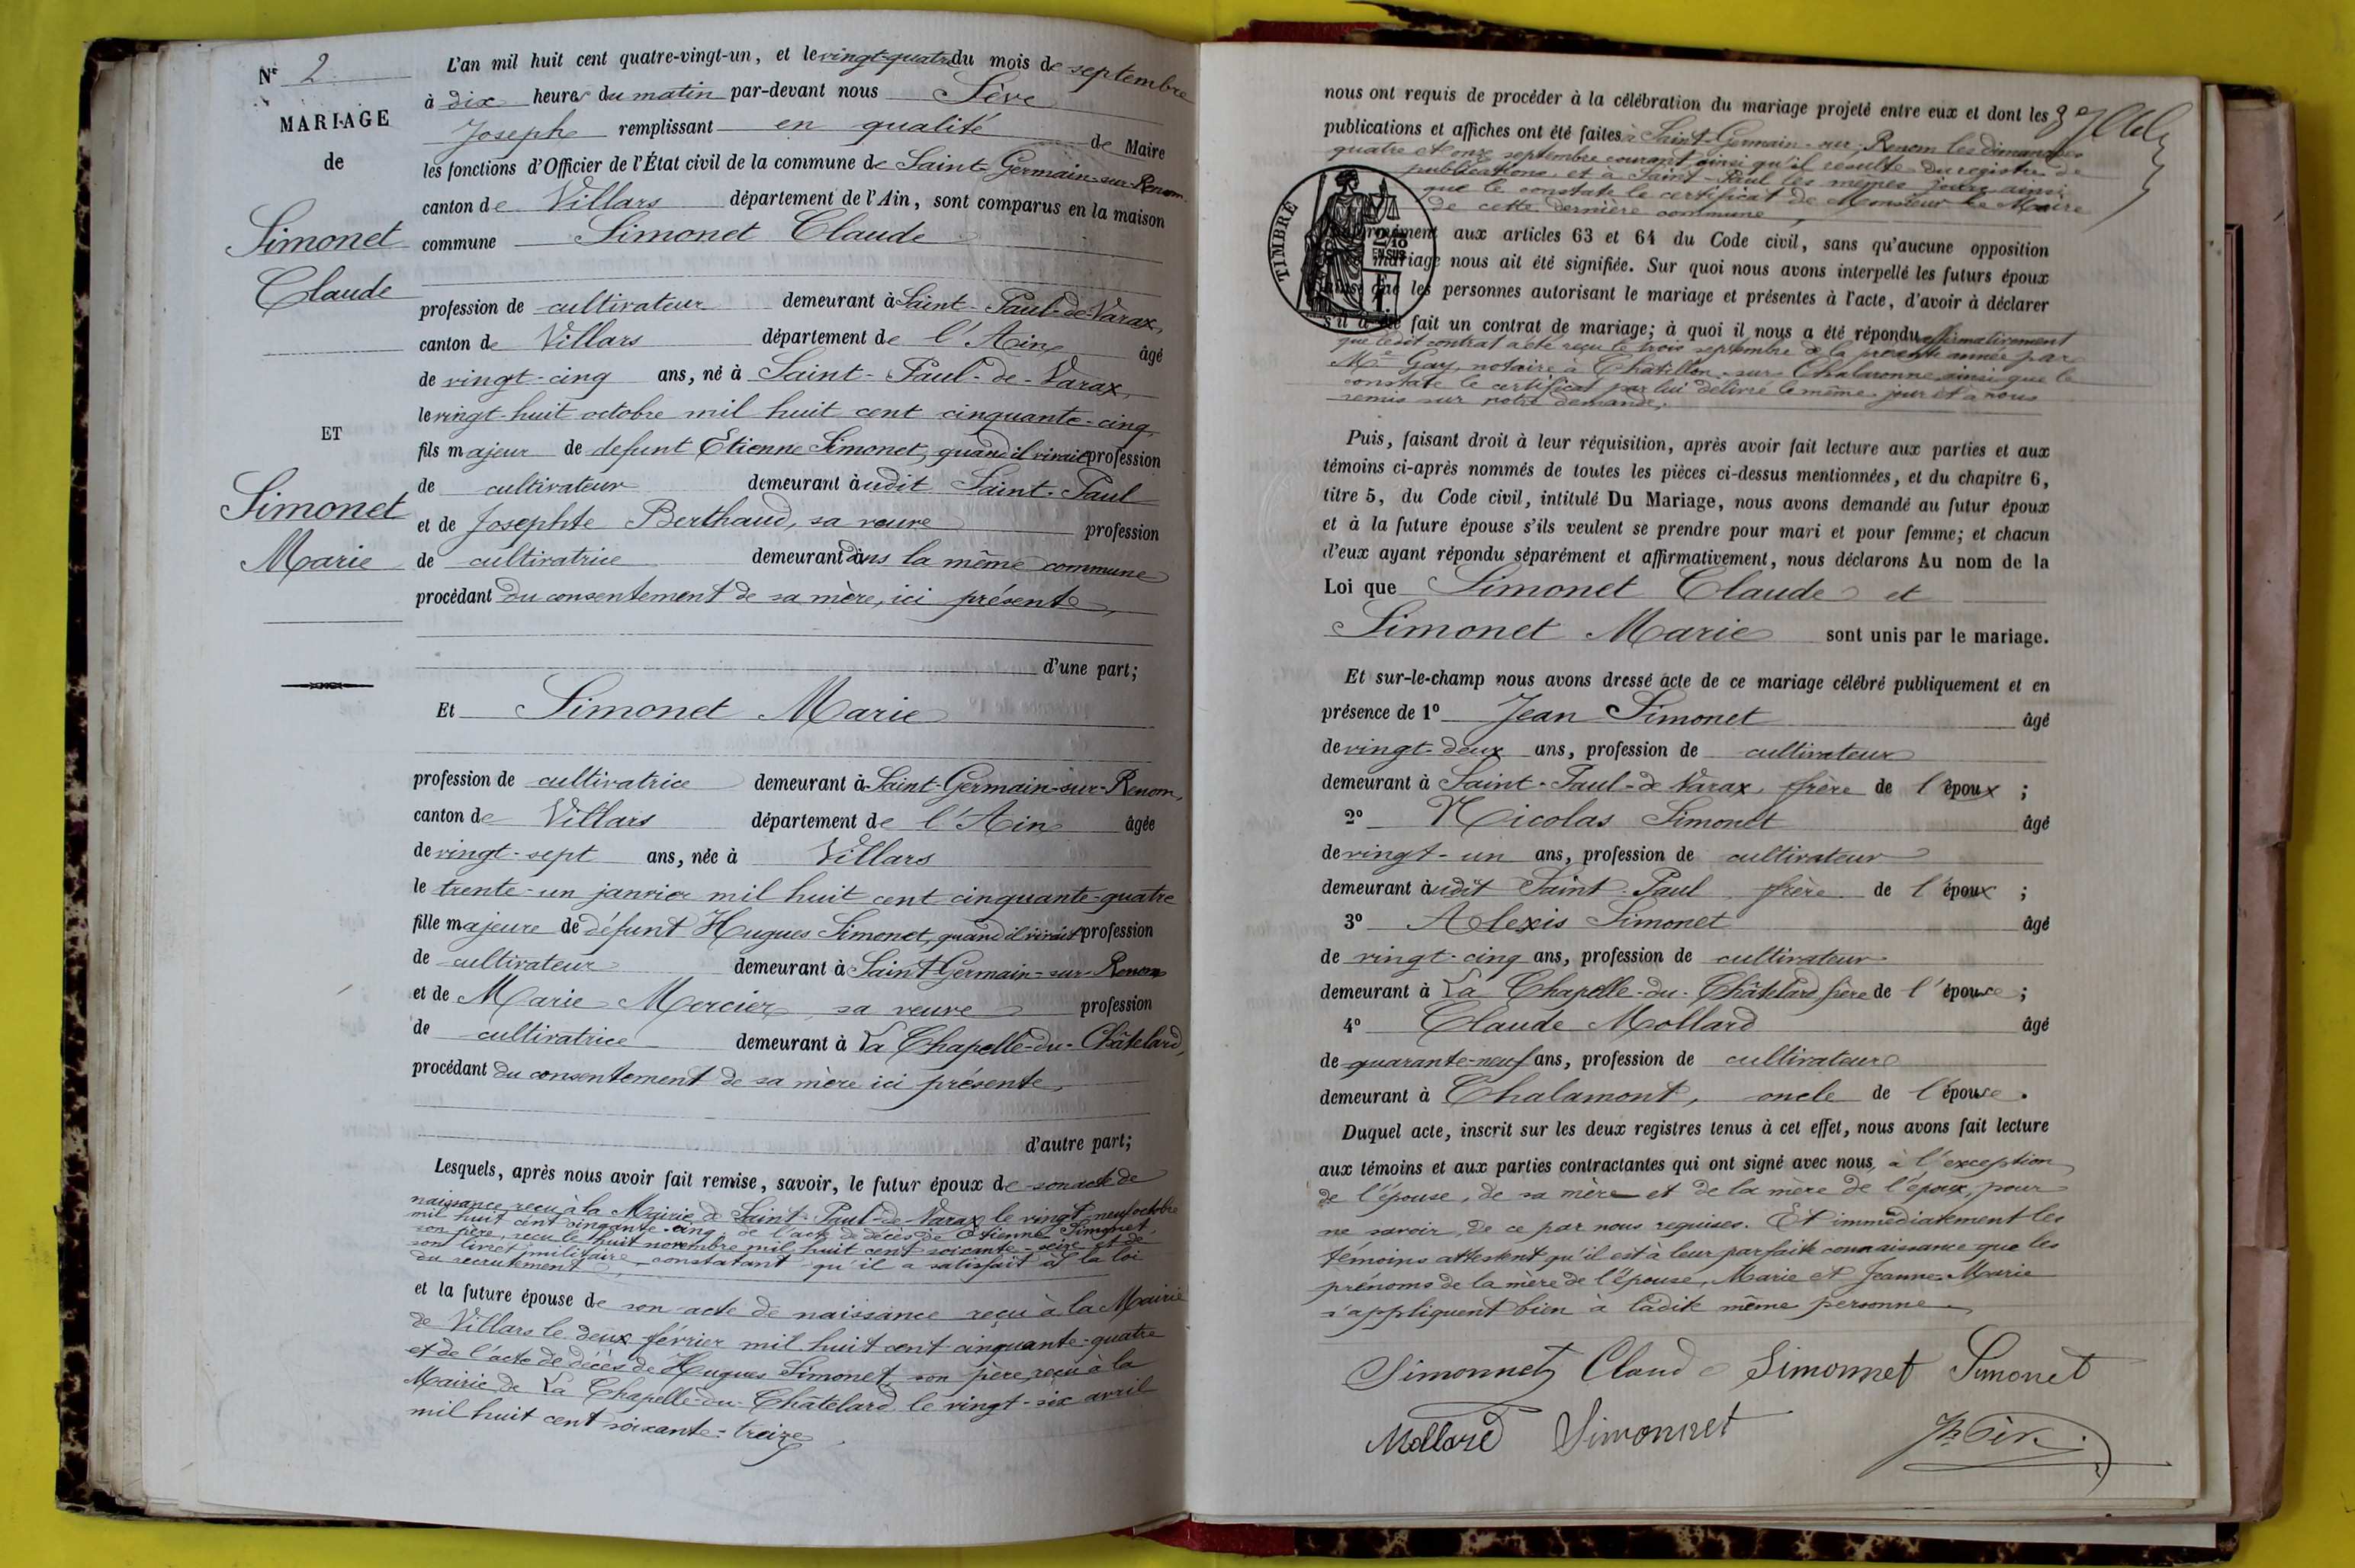 N° 2
MARIAGE
de
Simonet
Claude
ET
Simonet
Marie
L'an mil huit cent quatre-vingt-un, et le vingt-quatre du mois de septembre
à dix heures du matin par-devant nous Sève
Joseph remplissant en qualité de Maire
les fonctions d'Officier de l'État civil de la commune de Saint-Germain-sur-Renom
canton de Villars département de l'Ain, sont comparus en la maison
commune Simonet Claude
profession de cultivateur demeurant à Saint-Paul-de-Varax,
canton de Villars département de l'Ain âgé
de vingt-cinq ans, né à Saint-Paul-de-Varax,
le vingt-huit octobre mil huit cent cinquante-cinq,
fils majeur de defunt Etienne Simonet, quand il vivait profession
de cultivateur demeurant audit Saint-Paul
et de Josephte Berthaud, sa veuve profession
de cultivatrice demeurant dans la même commune
procédant du consentement de sa mère, ici présente,
d'une part;
Et Simonet Marie
profession de cultivatrice demeurant à Saint-Germain-sur-Renom,
canton de Villars département de l'Ain âgée
de vingt-sept ans, née à Villars
le trente-un janvier mil huit cent cinquante-quatre
fille majeure de défunt Hugues Simonet, quand il vivait profession
de cultivateur demeurant à Saint-Germain-sur-Renom
et de Marie Mercier, sa veuve profession
de cultivatrice demeurant à La Chapelle-du-Châtelard,
procédant du consentement de sa mère ici présente,
d'autre part;
Lesquels, après nous avoir fait remise, savoir, le futur époux de son acte de
naissance reçu à la Mairie de Saint-Paul-de-Varax le vingt-neuf octobre
mil huit cent cinquante-cinq, de l'acte de décès de Etienne Simonet,
son père, reçu le huit novembre mil huit cent soixante-seize et de
son livret militaire constatant qu'il a satisfait à la loi
du recrutement
et la future épouse de son acte de naissance reçu à la Mairie
de Villars le deux février mil huit cent cinquante-quatre
et de l'acte de décès de Hugues Simonet, son père, reçu à la
Mairie de La Chapelle-du-Châtelard le vingt-six avril
mil huit cent soixante-treize,
nous ont requis de procéder à la célébration du mariage projeté entre eux et dont les
publications et affiches ont été faites à Saint-Germain-sur-Renom les dimanches
quatre et onze septembre courant ainsi qu'il résulte du registre de
publications et à Saint-Paul les mêmes jours ainsi
que le constate le certificat de Monsieur le Maire
de cette dernière commune,
TIMBRE
2/10
EN SUS
aux articles 63 et 64 du Code civil, sans qu'aucune opposition
mariage nous ait été signifiée. Sur quoi nous avons interpellé les futurs époux
que les personnes autorisant le mariage et présentes à l'acte, d'avoir à déclarer
s'il a été fait un contrat de mariage; à quoi il nous a été répondu affirmativement
que ledit contrat a été reçu le trois septembre de la présente année par
Me Gay, notaire à Châtillon-sur-Chalaronne ainsi que le
constate le certificat par lui délivré le même jour et à nous
remis sur notre demande,
Puis, faisant droit à leur réquisition, après avoir fait lecture aux parties et aux
témoins ci-après nommés de toutes les pièces ci-dessus mentionnées, et du chapitre 6,
titre 5, du Code civil, intitulé Du Mariage, nous avons demandé au futur époux
et à la future épouse s'ils veulent se prendre pour mari et pour femme; et chacun
d'eux ayant répondu séparément et affirmativement, nous déclarons Au nom de la
Loi que Simonet Claude et
Simonet Marie sont unis par le mariage.
Et sur-le-champ nous avons dressé acte de ce mariage célébré publiquement et en
présence de 1° Jean Simonet âgé
de vingt-deux ans, profession de cultivateur
demeurant à Saint-Paul-de-Varax, frère de l'époux ;
2° Nicolas Simonet âgé
de vingt-un ans, profession de cultivateur
demeurant audit Saint-Paul frère de l'époux ;
3° Alexis Simonet âgé
de vingt-cinq ans, profession de cultivateur
demeurant à La Chapelle-du-Châtelard frère de l'épouse ;
4° Claude Mollard âgé
de quarante-neuf ans, profession de cultivateur
demeurant à Chalamont, oncle de l'épouse.
Duquel acte, inscrit sur les deux registres tenus à cet effet, nous avons fait lecture
aux témoins et aux parties contractantes qui ont signé avec nous, à l'exception
de l'épouse, de sa mère et de la mère de l'époux, pour
ne savoir, de ce par nous requises. Et immédiatement les
témoins attestent qu'il est à leur parfaite connaissance que les
prénoms de la mère de l'épouse, Marie et Jeanne-Marie
s'appliquent bien à ladite même personne
Simonnet Claude Simonnet Simonet
Mollard Simonnet
Jh Sève